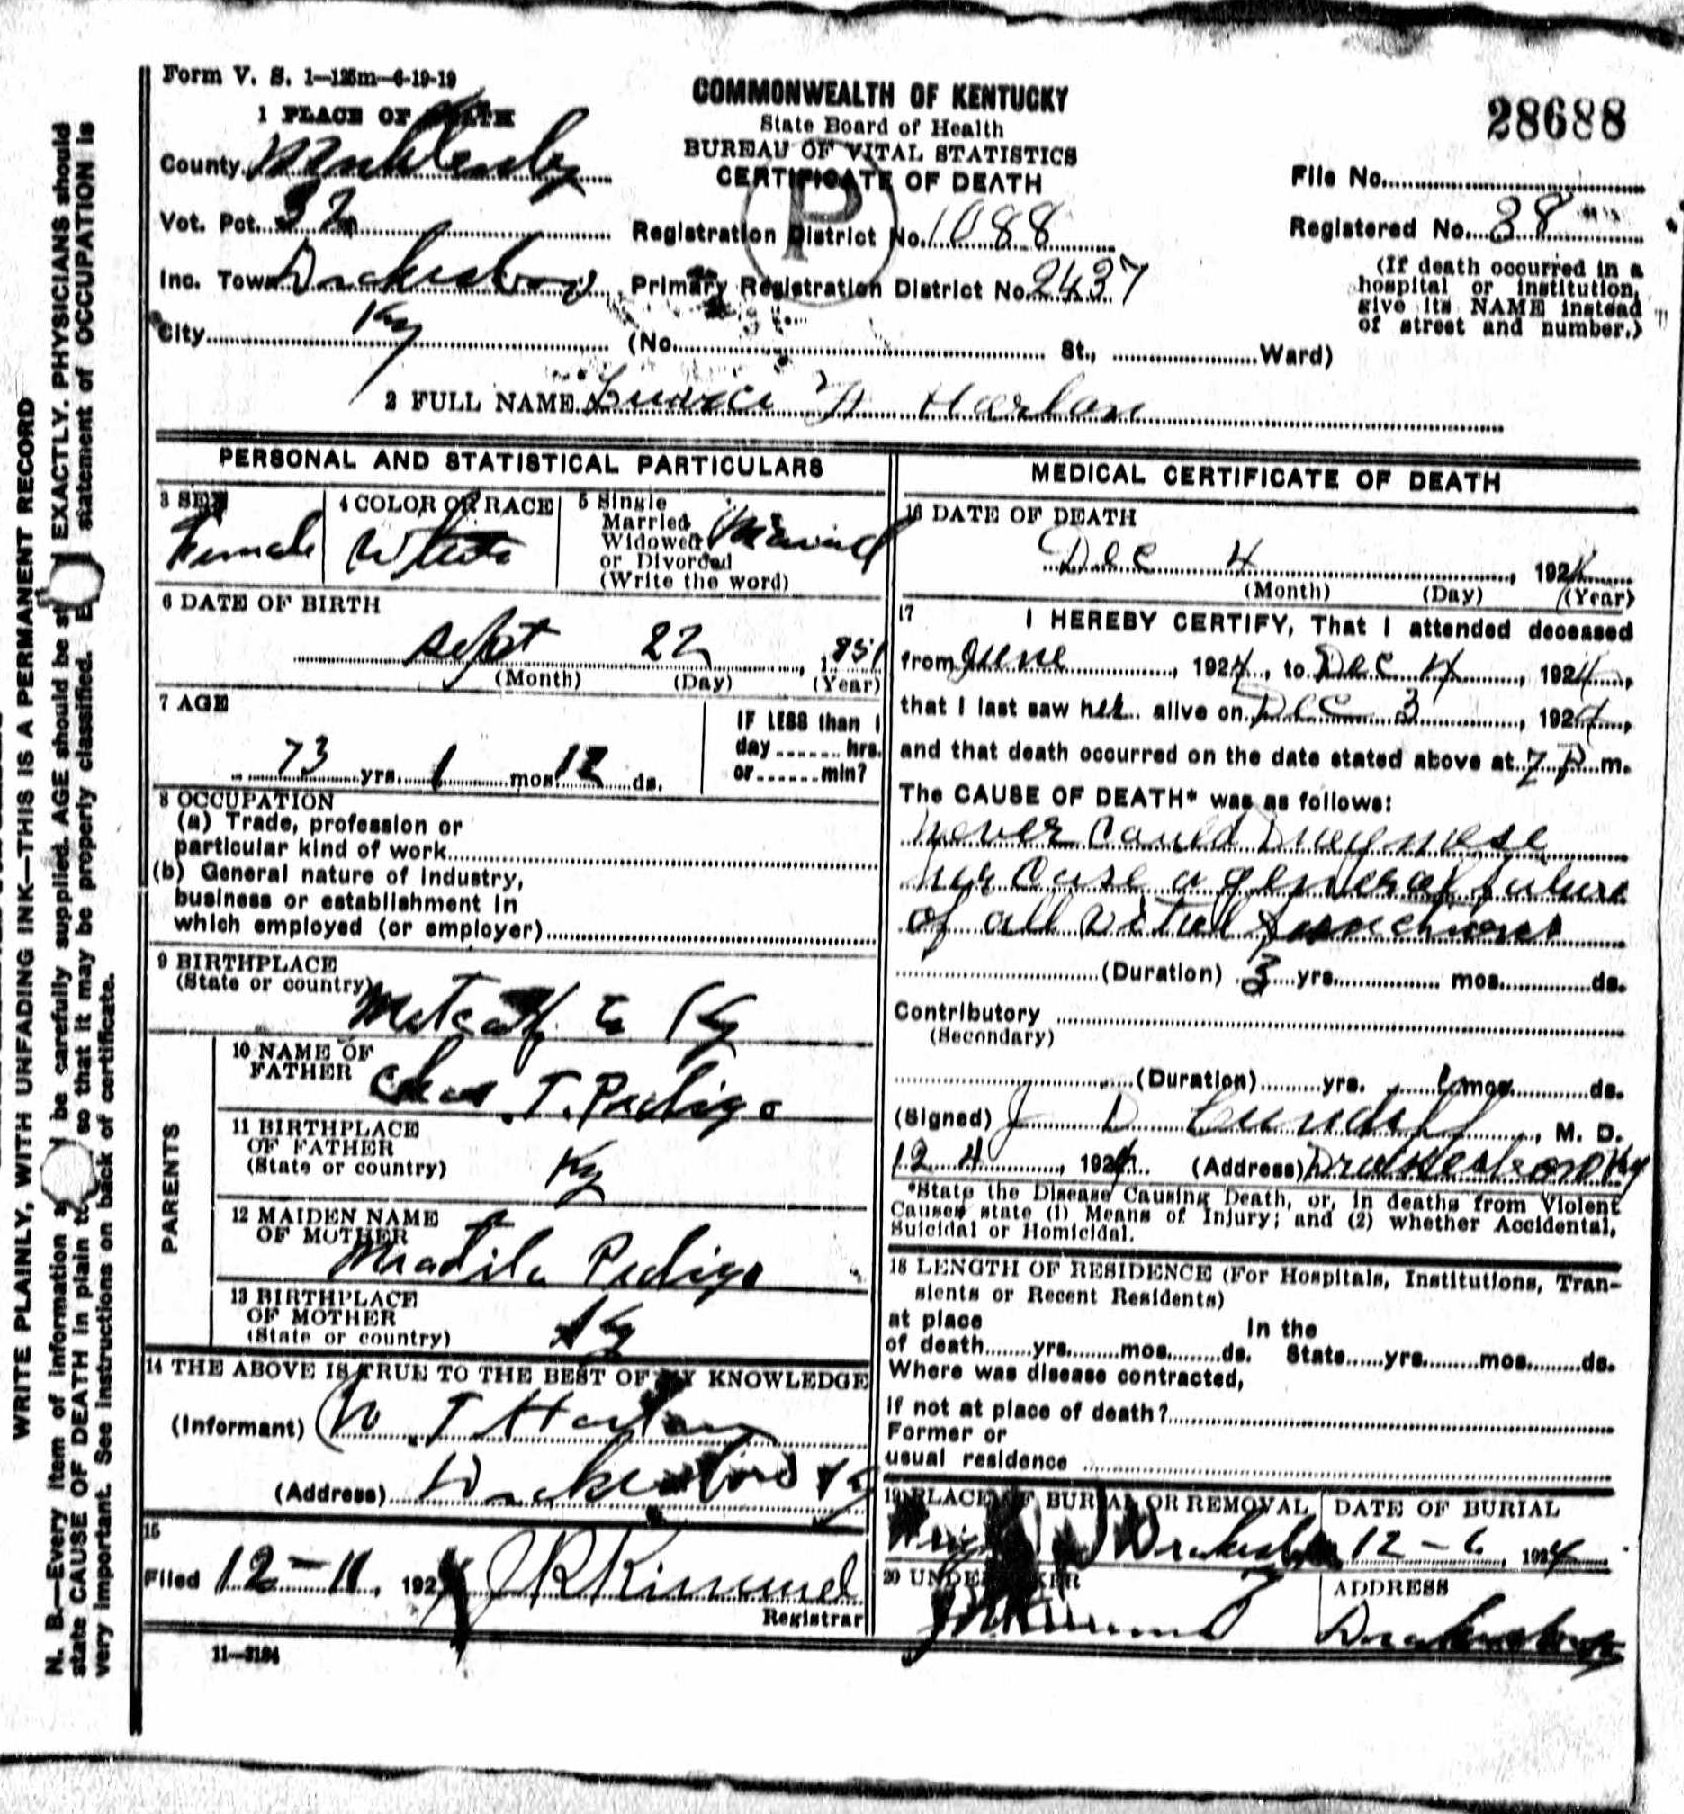 Form V. S. 1—125m—6-19-19
1 PLACE OF DEATH
COMMONWEALTH OF KENTUCKY
State Board of Health
BUREAU OF VITAL STATISTICS
CERTIFICATE OF DEATH
28688
County Muhlenberg
Vot. Pct. 32
Inc. Town Drakesboro
Ky
City
Registration District No. 1088
Primary Registration District No. 2437
(No. St., Ward)
File No.
Registered No. 38
(If death occurred in a
hospital or institution,
give its NAME instead
of street and number.)
P
2 FULL NAME Harlan
PERSONAL AND STATISTICAL PARTICULARS
3 SEX
Female
4 COLOR OR RACE
White
5 Single
Married
Widowed
or Divorced
(Write the word)
Married
6 DATE OF BIRTH
Sept 22, 1851
(Month) (Day) (Year)
7 AGE
73 yrs. 1 mos. 12 ds.
IF LESS than 1
day hrs.
or min?
8 OCCUPATION
(a) Trade, profession or
particular kind of work
(b) General nature of industry,
business or establishment in
which employed (or employer)
9 BIRTHPLACE
(State or country)
Metcalf Co Ky
PARENTS
10 NAME OF
FATHER
Chas. T. Pedigo
11 BIRTHPLACE
OF FATHER
(State or country)
Ky
12 MAIDEN NAME
OF MOTHER
Pedigo
13 BIRTHPLACE
OF MOTHER
(State or country)
Ky
14 THE ABOVE IS TRUE TO THE BEST OF MY KNOWLEDGE
(Informant) W. T. Harlan
(Address) Drakesboro Ky
15
Filed 12-11, 1924 J R Kimmel
Registrar
11—3184
MEDICAL CERTIFICATE OF DEATH
16 DATE OF DEATH
Dec 4, 1924
(Month) (Day) (Year)
17 I HEREBY CERTIFY, That I attended deceased
from June, 1924, to Dec 4, 1924,
that I last saw her alive on Dec 3, 1924,
and that death occurred on the date stated above at 7 P. m.
The CAUSE OF DEATH* was as follows:
never could Diagnose
her case a general failure
of all vital functions
(Duration) 3 yrs. mos. ds.
Contributory
(Secondary)
(Duration) yrs. mos. ds.
(Signed) J D , M. D.
12 4, 1924 (Address) Drakesboro Ky
*State the Disease Causing Death, or, in deaths from Violent
Causes state (1) Means of Injury; and (2) whether Accidental,
Suicidal or Homicidal.
18 LENGTH OF RESIDENCE (For Hospitals, Institutions, Tran-
sients or Recent Residents)
at place
of death yrs. mos. ds.
In the
State yrs. mos. ds.
Where was disease contracted,
if not at place of death?
Former or
usual residence
19 PLACE OF BURIAL OR REMOVAL
Drakesboro
DATE OF BURIAL
12-6, 1924
20 UNDERTAKER
ADDRESS
Drakesboro
WRITE PLAINLY, WITH UNFADING INK—THIS IS A PERMANENT RECORD
N. B.—Every item of information be carefully supplied. AGE should be EXACTLY. PHYSICIANS should
state CAUSE OF DEATH in plain so that it may be properly classified. statement of OCCUPATION is
very important. See instructions on back of certificate.